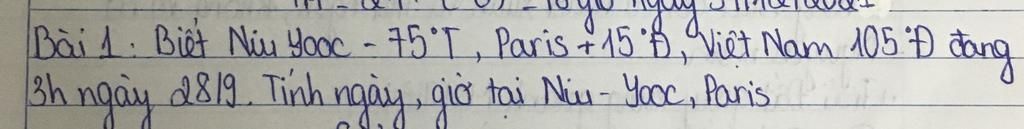 Bài 1: Biết Niu Yooc - 75°T, Paris + 15°Đ, Việt Nam 105°Đ đang
3h ngày 28/9. Tính ngày, giờ tại Niu - Yooc, Paris